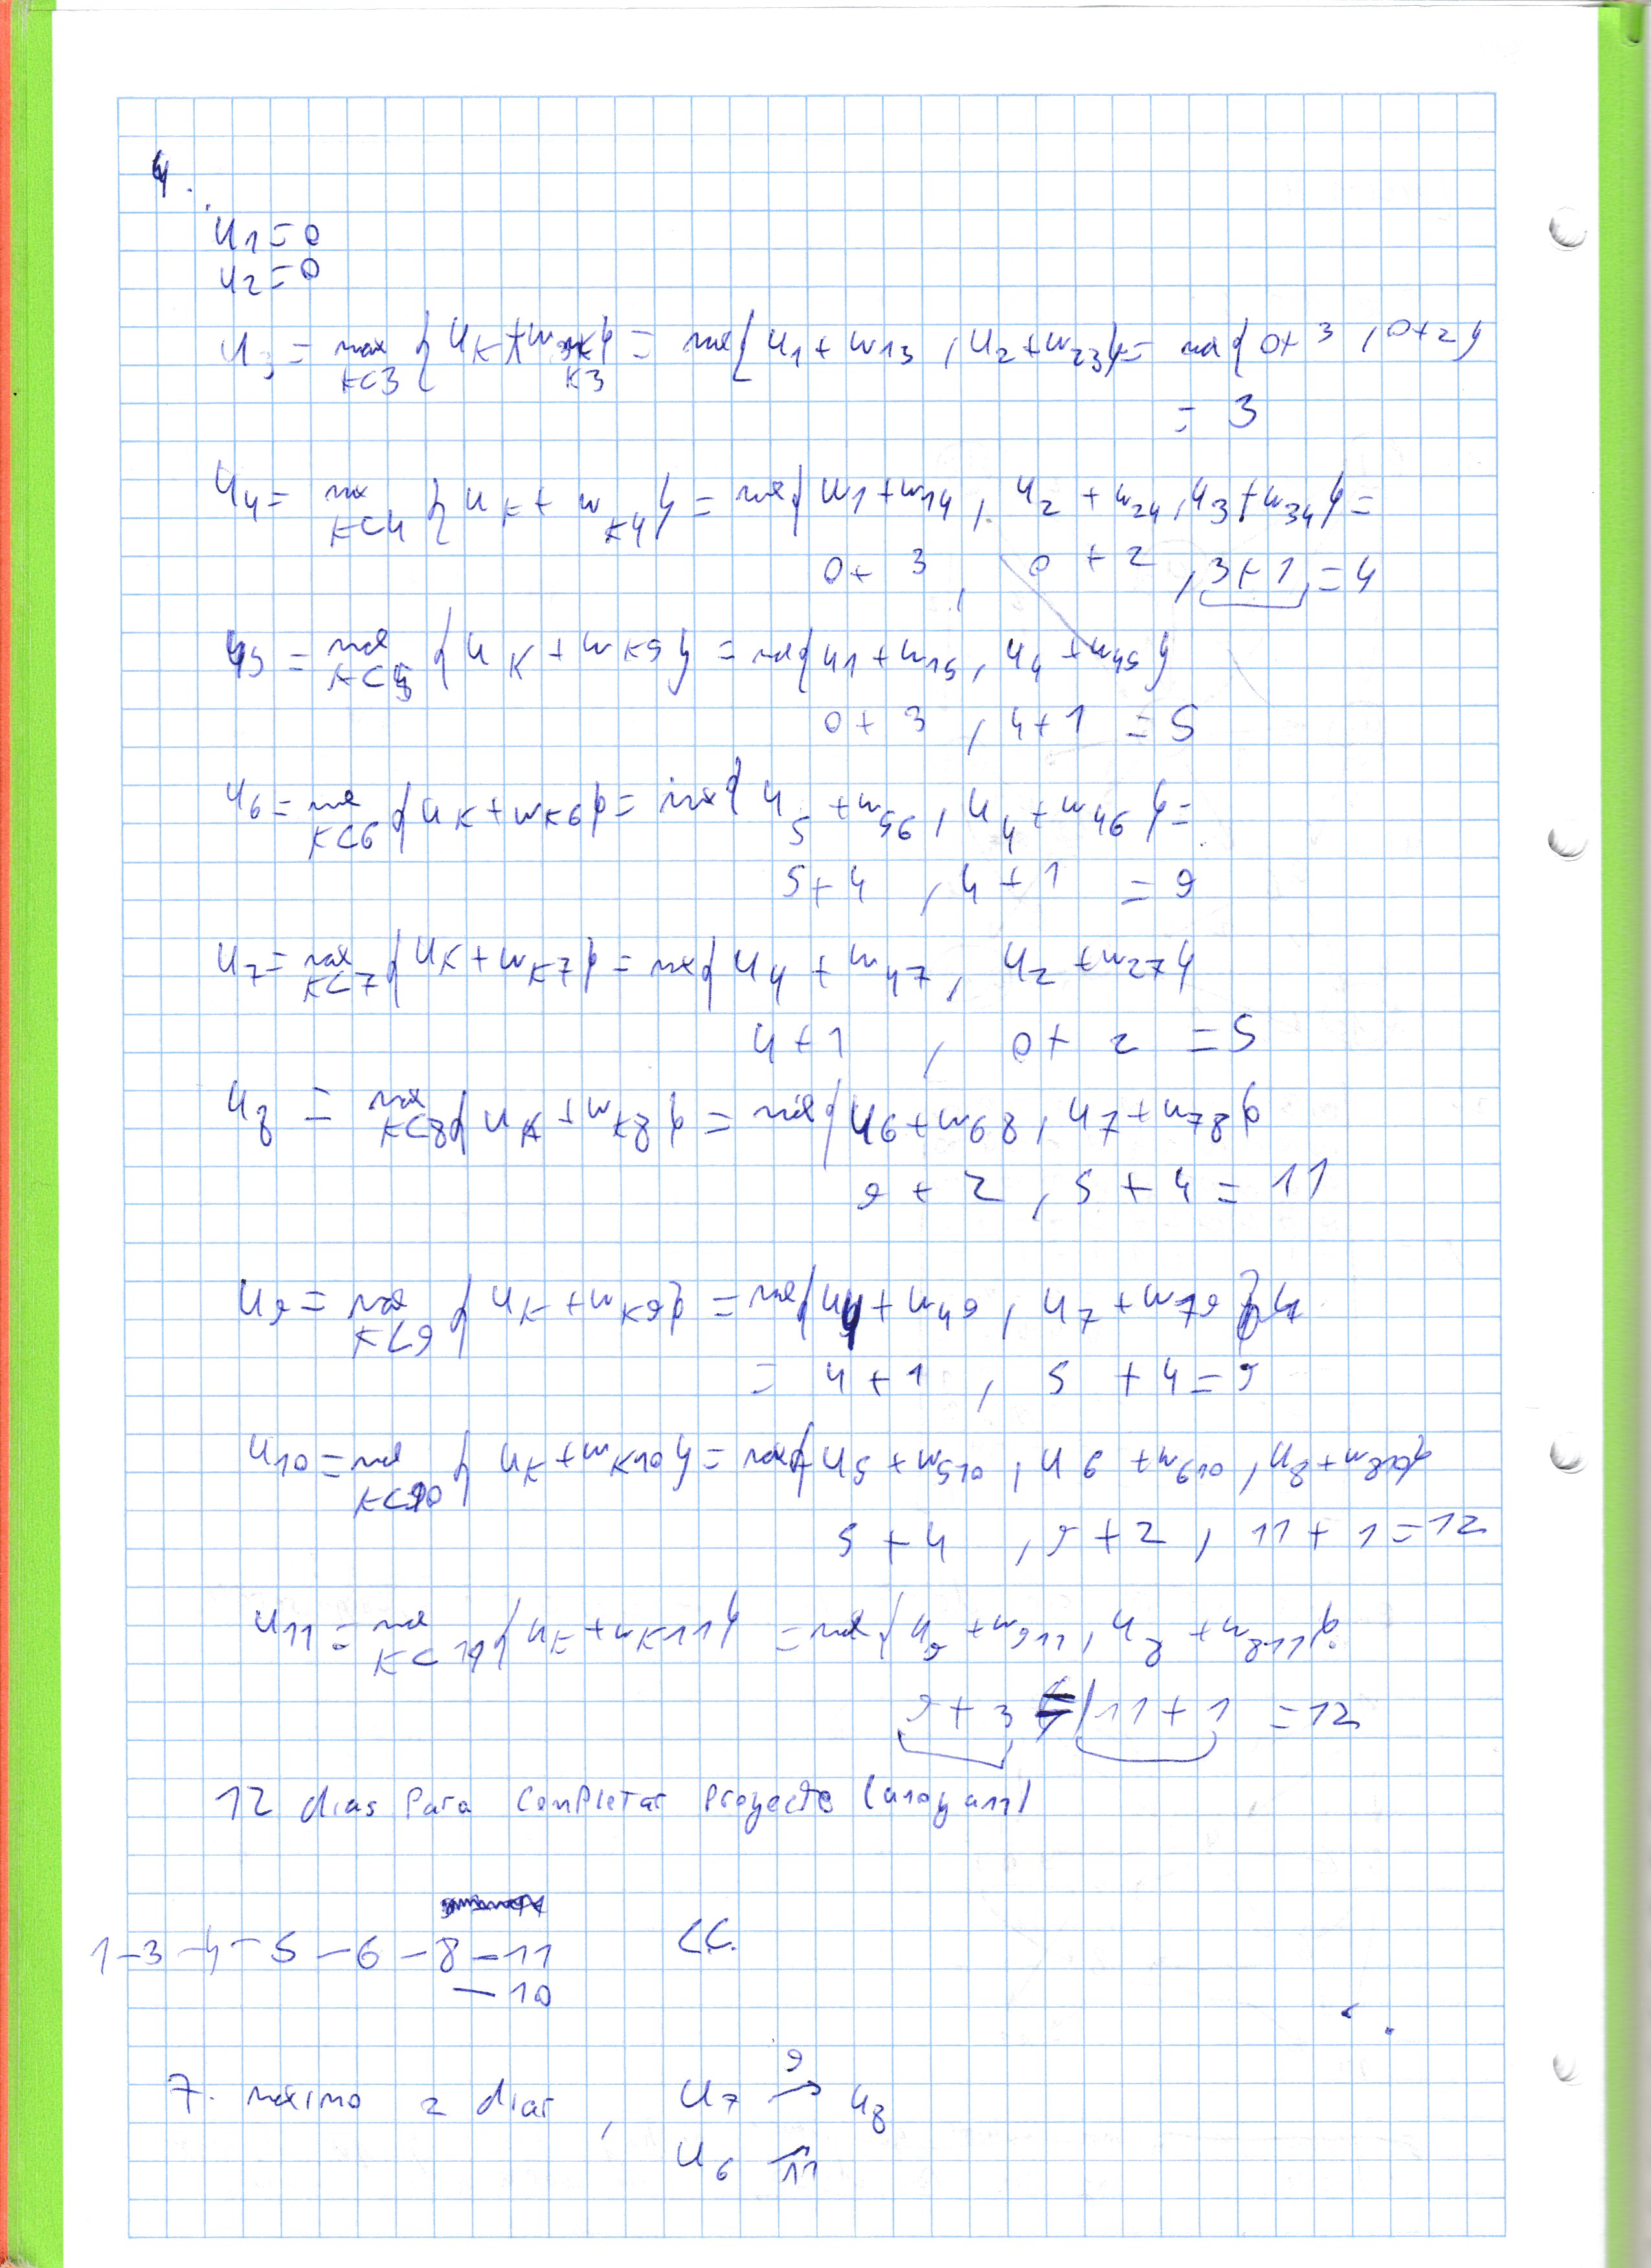 4.
u1 = 0
u2 = 0
u3 = max k<3 { uk + w k3 } = max { u1 + w13 , u2 + w23 } = max { 0+3 , 0+2 }
= 3
u4 = max k<4 { uk + w k4 } = max { u1 + w14 , u2 + w24 , u3 + w34 } =
0+3 , 0+2 , 3+1 = 4
u5 = max k<5 { uk + w k5 } = max { u1 + w15 , u4 + w45 }
0+3 , 4+1 = 5
u6 = max k<6 { uk + w k6 } = max { u5 + w56 , u4 + w46 } =
5+4 , 4+1 = 9
u7 = max k<7 { uk + w k7 } = max { u4 + w47 , u2 + w27 }
4+1 , 0+2 = 5
u8 = max k<8 { uk + w k8 } = max { u6 + w68 , u7 + w78 }
9+2 , 5+4 = 11
u9 = max k<9 { uk + w k9 } = max { u4 + w49 , u7 + w79 }
= 4+1 , 5+4 = 9
u10 = max k<10 { uk + w k10 } = max { u5 + w510 , u6 + w610 , u8 + w810 }
5+4 , 9+2 , 11+1 = 12
u11 = max k<11 { uk + w k11 } = max { u9 + w911 , u8 + w811 }
9+3 , 11+1 = 12
12 dias para completar proyecto (a10 y a11)
1-3-4-5-6-8-11 CC.
-10
7. máximo 2 dias , u7 9→ u8
u6 →11